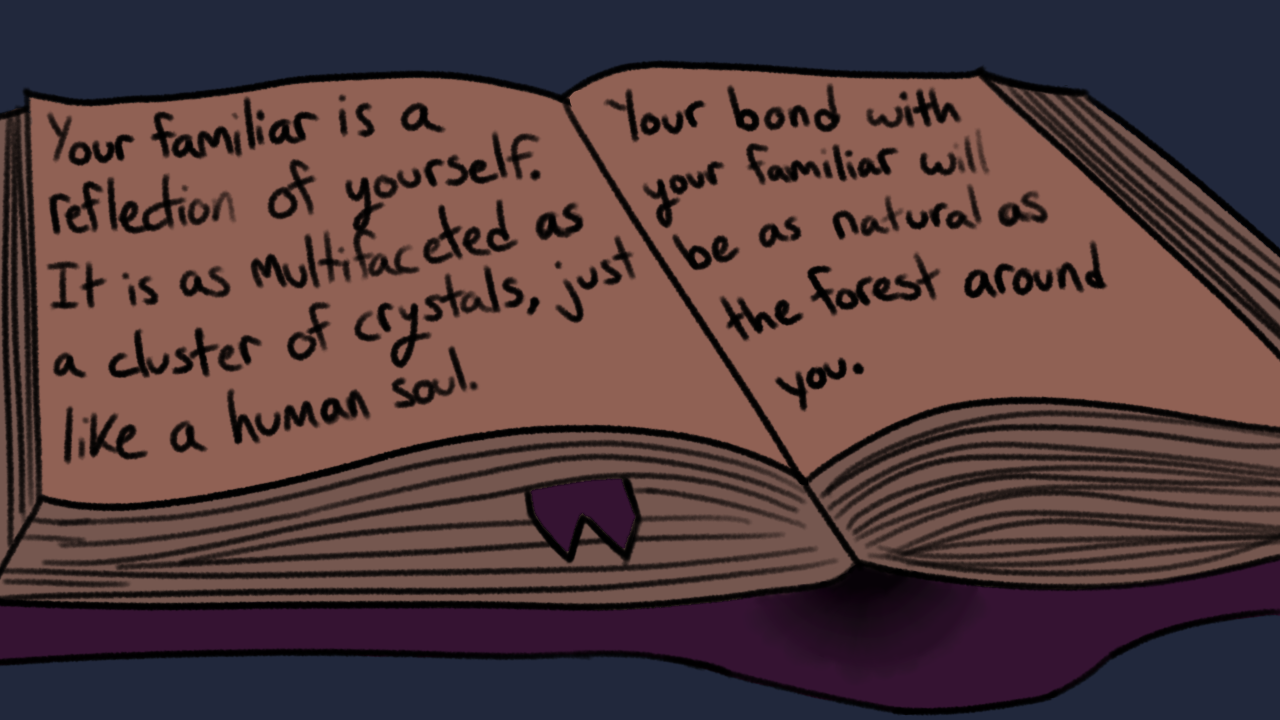 Your familiar is a
reflection of yourself.
It is as multifaceted as
a cluster of crystals, just
like a human soul.
Your bond with
your familiar will
be as natural as
the forest around
you.